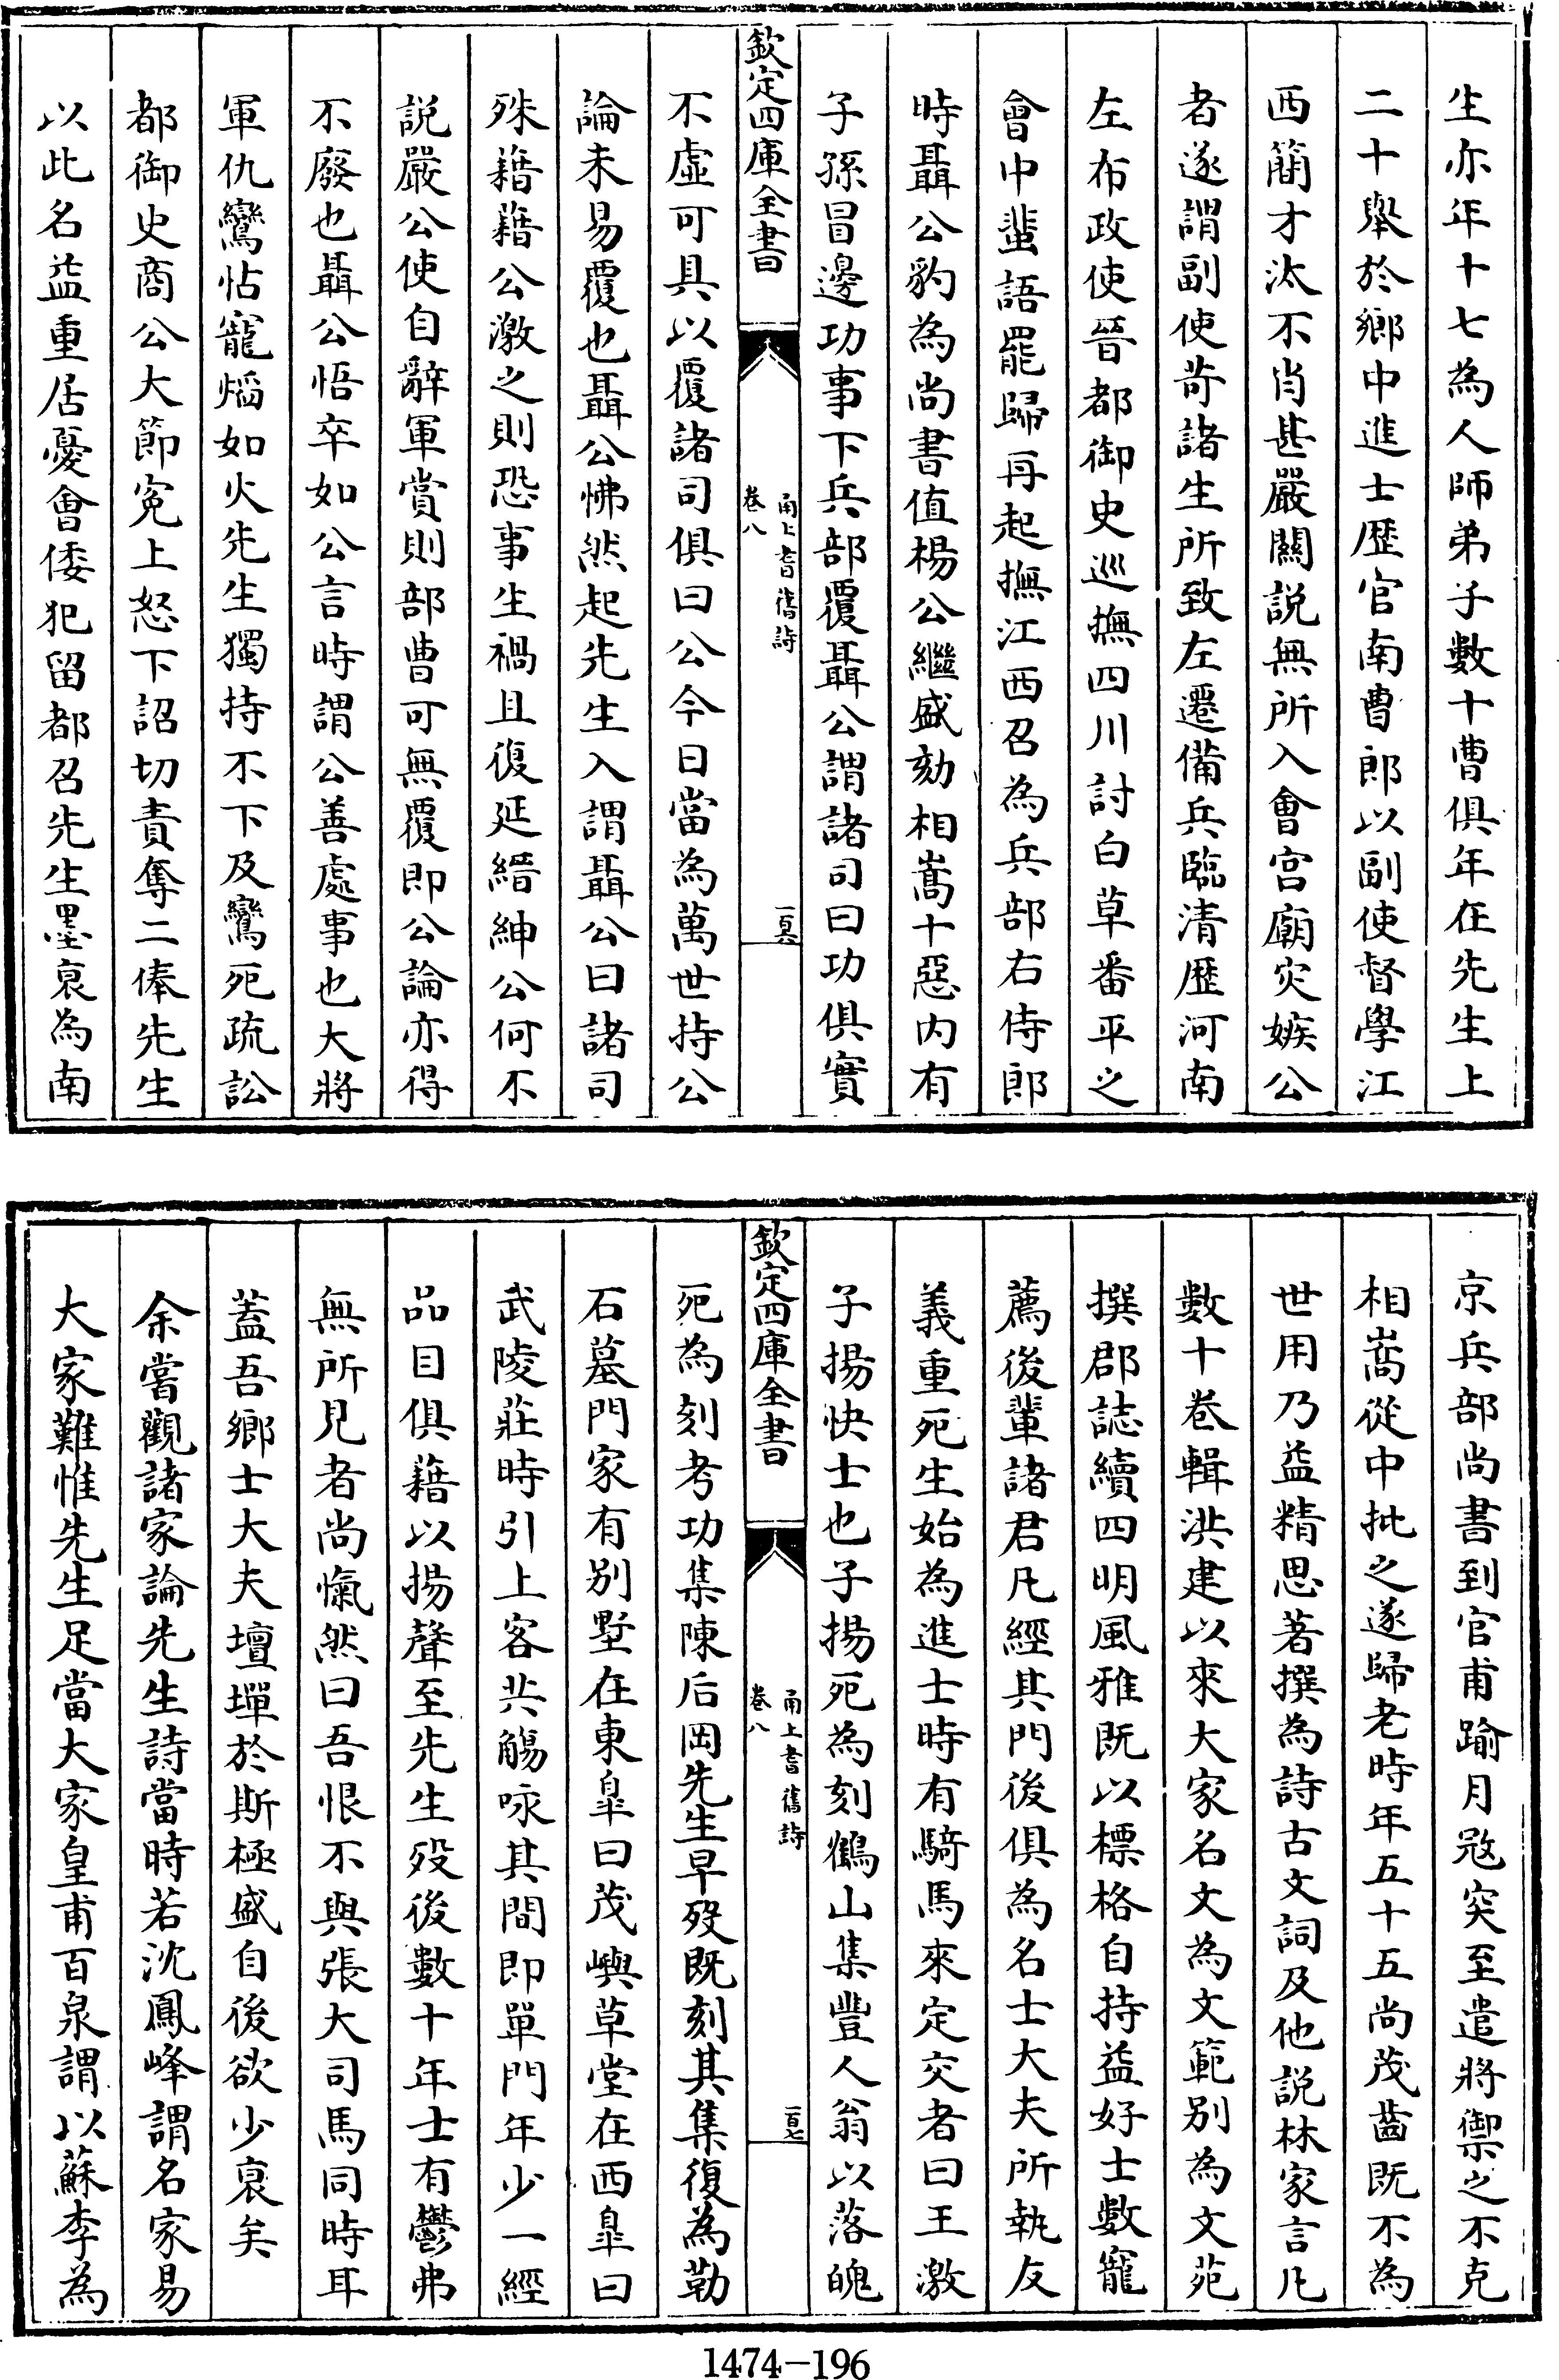 生亦年十七為人師弟子數十曹俱年在先生上
二十舉於鄉中進士歴官南曹郎以副使督學江
西簡才汰不肖甚嚴關説無所入會宫廟灾嫉公
者遂謂副使苛諸生所致左遷備兵臨清歴河南
左布政使晉都御史巡撫四川討白草番平之
會中蜚語罷歸再起撫江西召為兵部右侍郎
時聶公豹為尚書值楊公繼盛劾相嵩十惡内有
子孫冒邊功事下兵部覆聶公謂諸司曰功俱實
欽定四庫全書
甬上耆舊詩
卷八
一百六
不虛可具以覆諸司俱曰公今日當為萬世持公
論未易覆也聶公怫然起先生入謂聶公曰諸司
殊藉藉公激之則恐事生禍且復延縉紳公何不
説嚴公使自辭軍賞則部曹可無覆即公論亦得
不廢也聶公悟卒如公言時謂公善處事也大將
軍仇鸞怙寵熖如火先生獨持不下及鸞死疏訟
都御史商公大節寃上怒下詔切責奪二俸先生
以此名益重居憂會倭犯留都召先生墨衰為南
京兵部尚書到官甫踰月㓂突至遣將禦之不克
相嵩從中批之遂歸老時年五十五尚茂齒既不為
世用乃益精思著撰為詩古文詞及他説林家言凡
數十卷輯洪建以來大家名文為文範别為文苑
撰郡誌續四明風雅既以標格自持益好士數寵
薦後輩諸君凡經其門後俱為名士大夫所執友
義重死生始為進士時有騎馬來定交者曰王激
子揚快士也子揚死為刻鶴山集豐人翁以落魄
欽定四庫全書
甬上耆舊詩
卷八
一百七
死為刻考功集陳后岡先生早殁既刻其集復為勒
石墓門家有别墅在東臯曰茂嶼草堂在西臯曰
武陵莊時引上客共觴咏其間即單門年少一經
品目俱藉以揚聲至先生殁後數十年士有鬱弗
無所見者尚愾然曰吾恨不與張大司馬同時耳
蓋吾鄉士大夫壇墠於斯極盛自後欲少衰矣
余嘗觀諸家論先生詩當時若沈鳳峰謂名家易
大家難惟先生足當大家皇甫百泉謂以蘇李為
1474-196